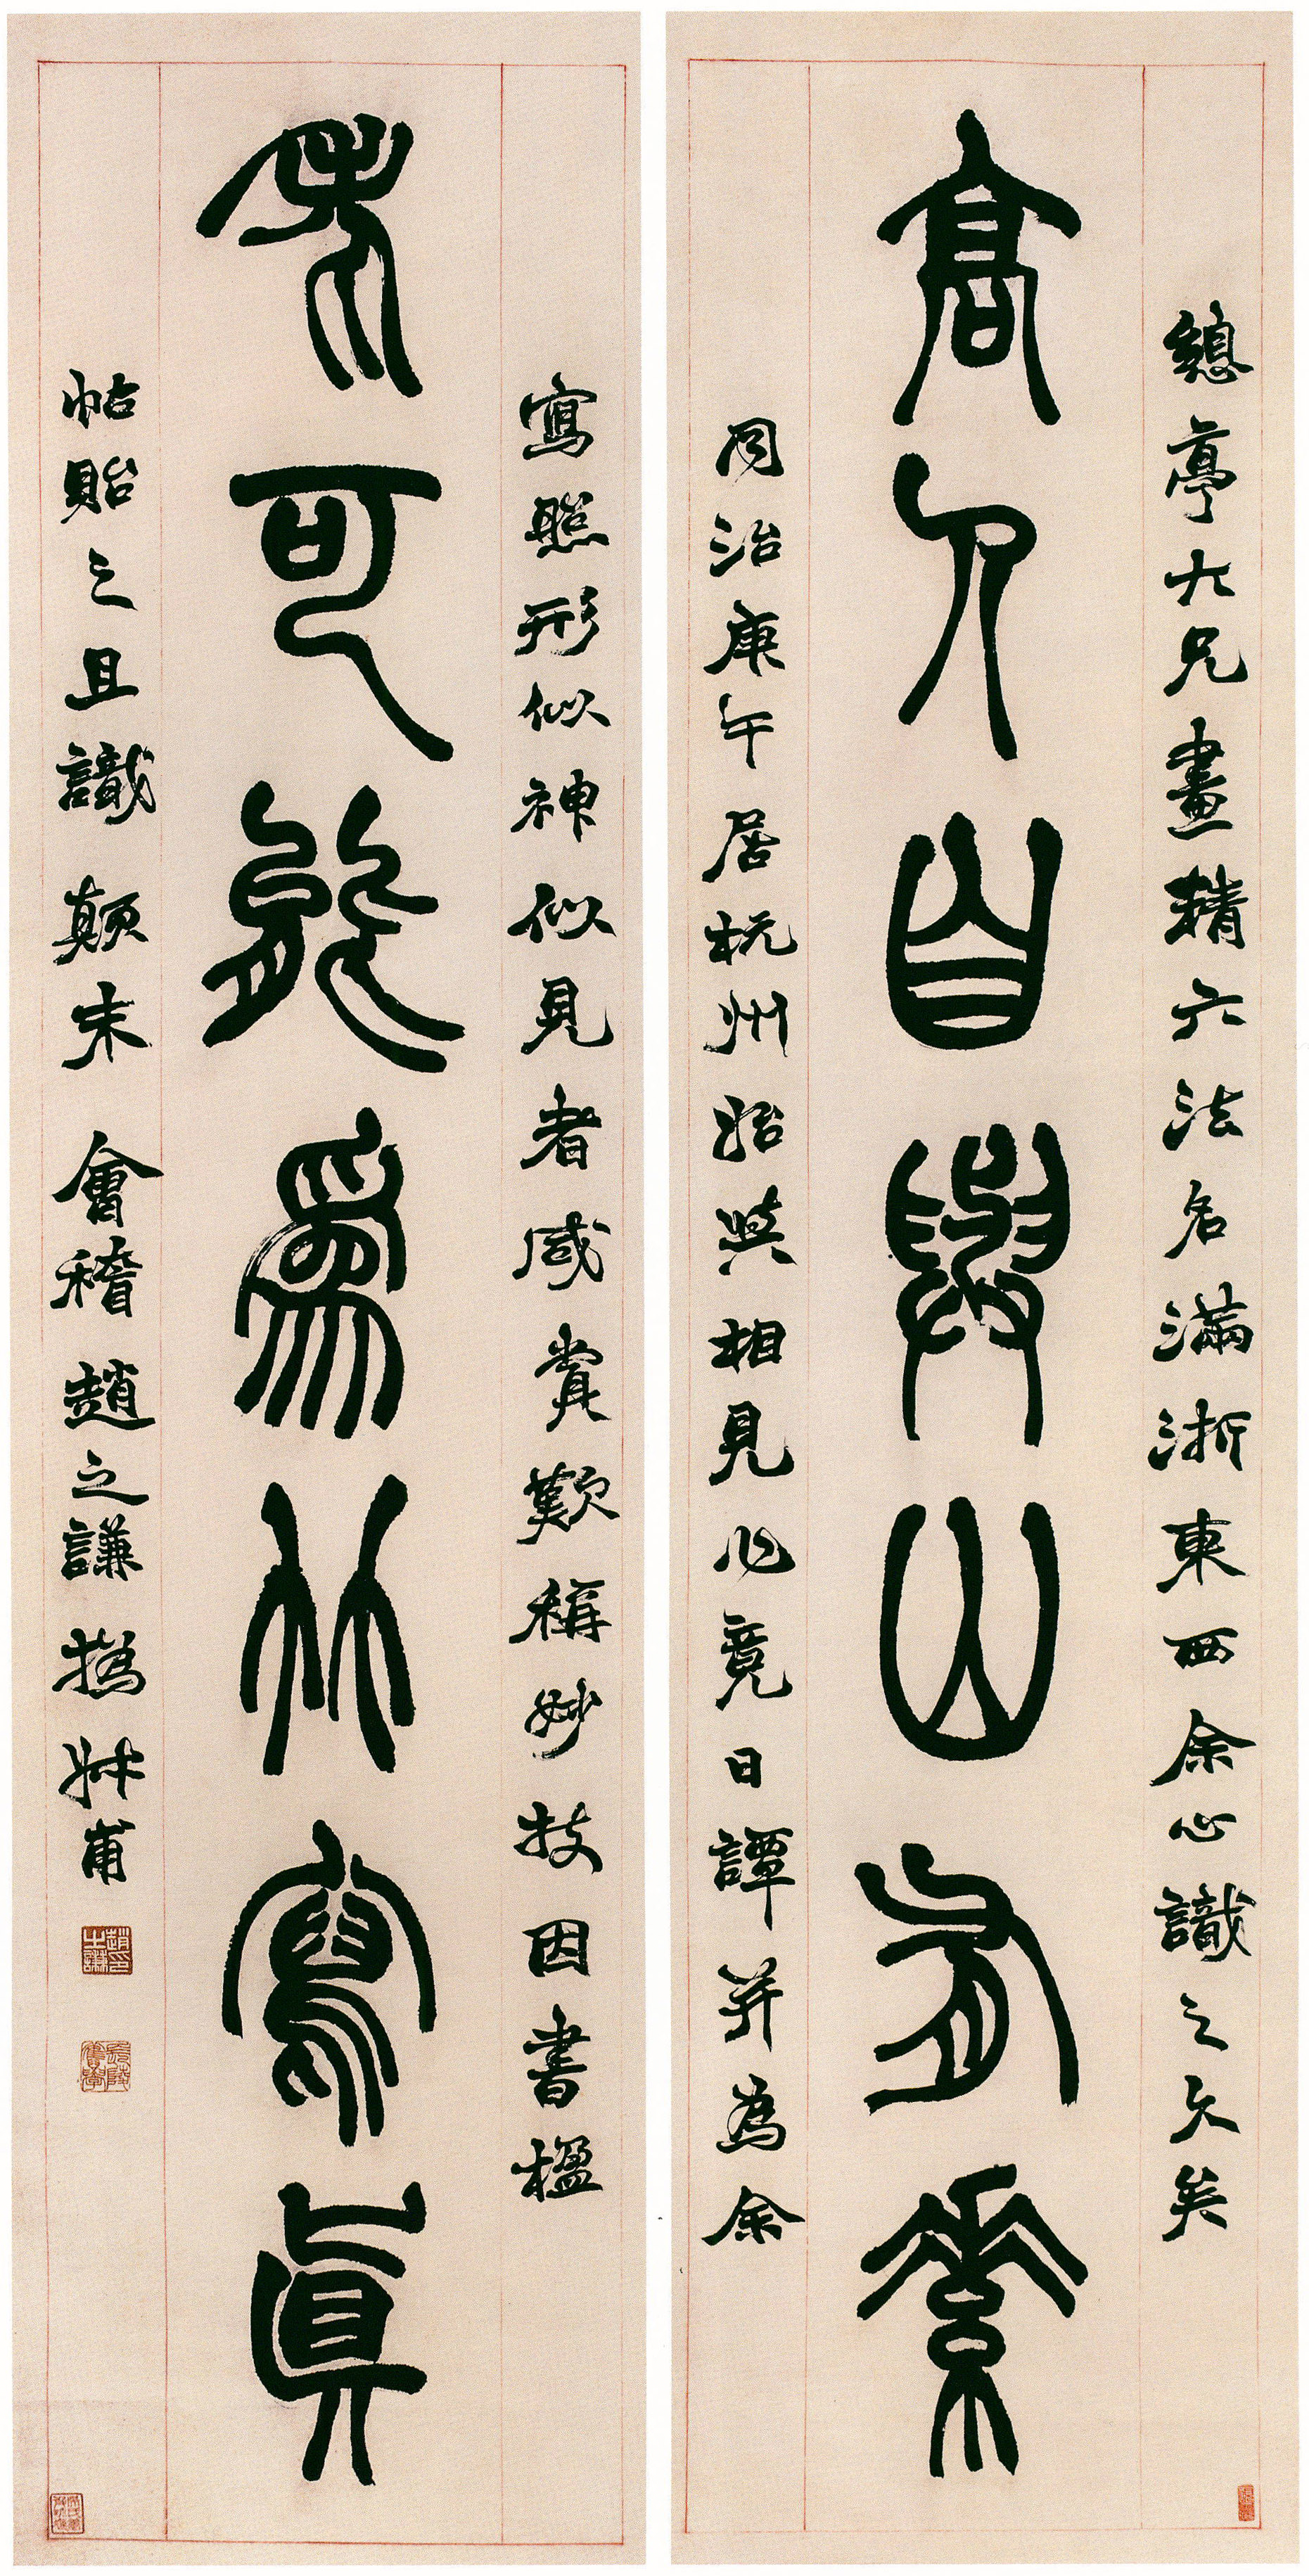 總亭大兄畫精六法名滿浙東西余心識之久矣
高人自與山有素
同治庚午居杭州始與相見必竟日譚并為余
寫照形似神似見者咸賞歎稱妙技因書楹
老可能爲竹寫真
帖貽之且識顛末 會稽趙之謙撝叔甫
趙之謙印
長陵舊學